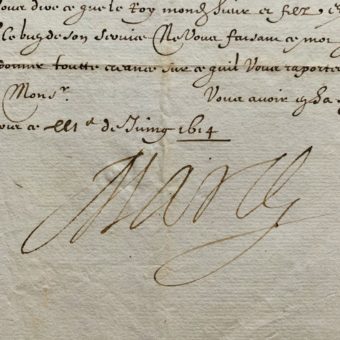 Vous dire ce que le Roy monds. fair et filz, e
le bien de son service Ne Vous faisant ce mot
donner toutte creance sur ce quil Vous raportera
Mons.r Vous avoir en sa
ce iiii.e de Juing 1614
Marie